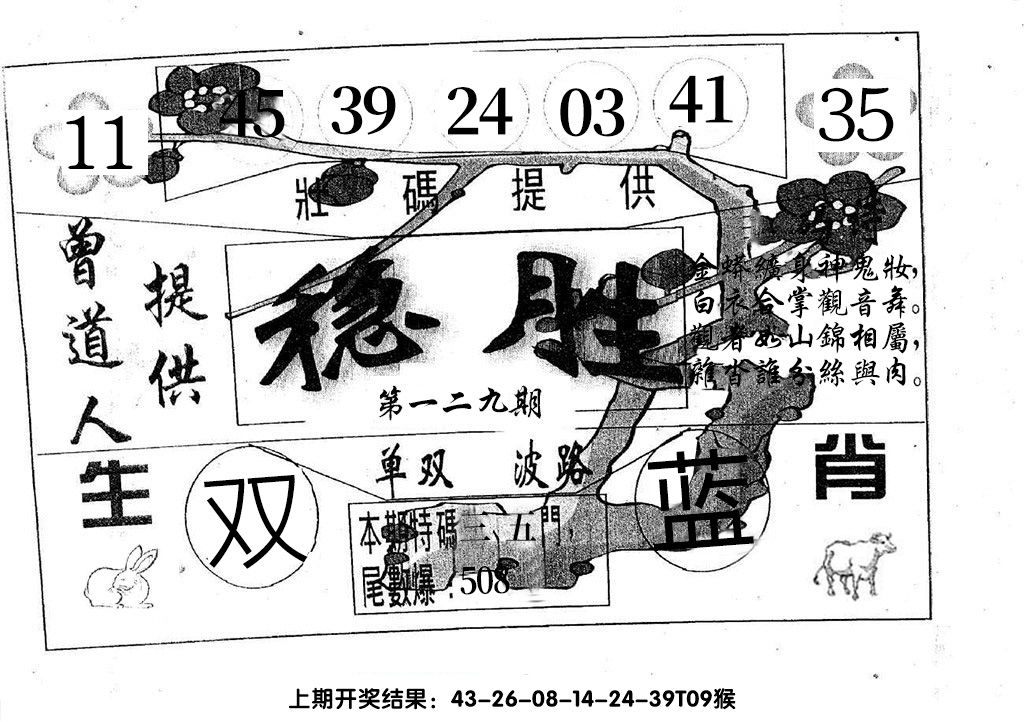 11 45 39 24 03 41 35
壯碼提供
特
曾道人
提供
稳胜
第一二九期
金蟒纏身神鬼妝，
白衣合掌觀音舞。
觀者如山錦相屬，
雜沓誰分絲與肉。
单双 波路
生肖
双
蓝
本期特碼三、五門，
尾數爆：508
上期开奖结果：43-26-08-14-24-39T09猴